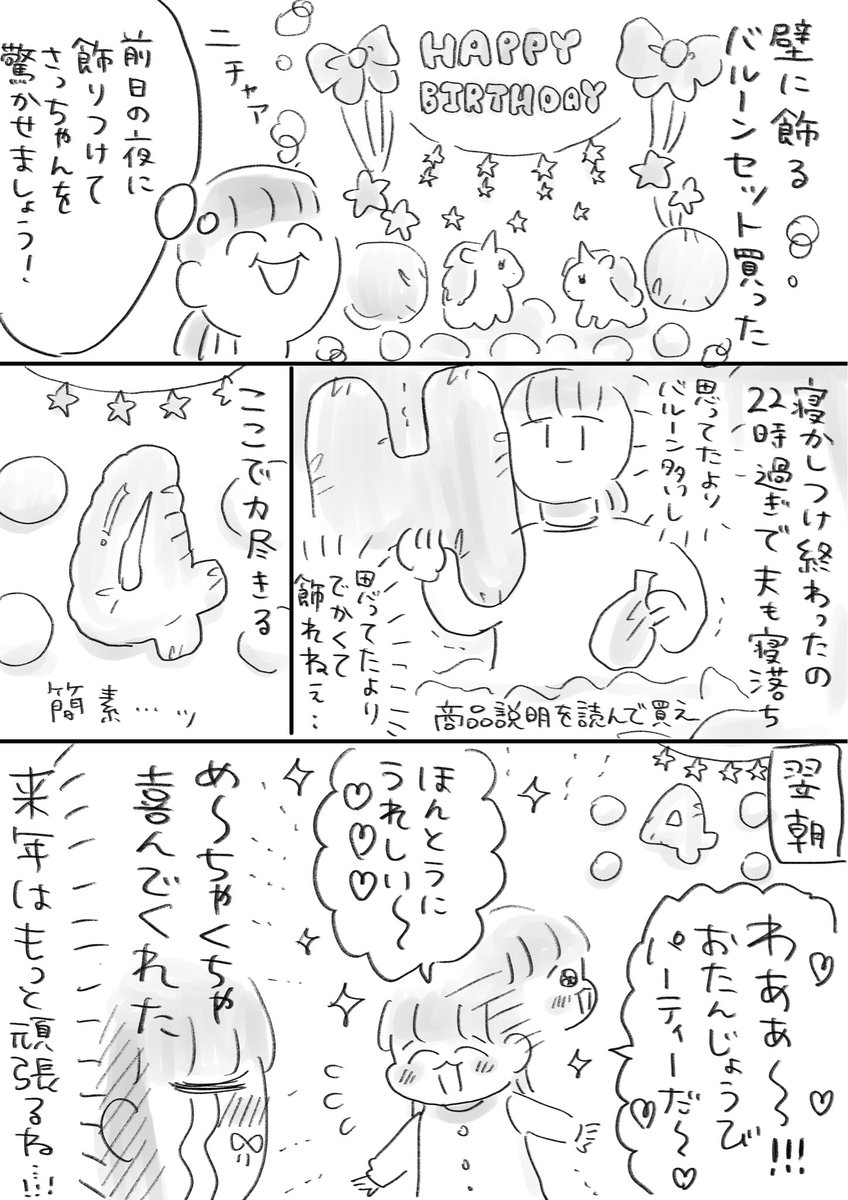 壁に飾る
バルーンセット買った
HAPPY
BIRTHDAY
ニチャァ
前日の夜に
飾りつけて
さっちゃんを
驚かせましょう!
寝かしつけ終わったの
22時過ぎで夫も寝落ち
思ってたより
バルーン多いし
思ってたより
でかくて
飾れねぇ‥
商品説明を読んで買え
ここで力尽きる
4
簡素…ッ
翌朝
4
わあぁ〜〜!!!
おたんじょうび
パーティーだ〜
ほんとうに
うれしい〜
め〜ちゃくちゃ
喜んでくれた
来年はもっと頑張るね…!!!